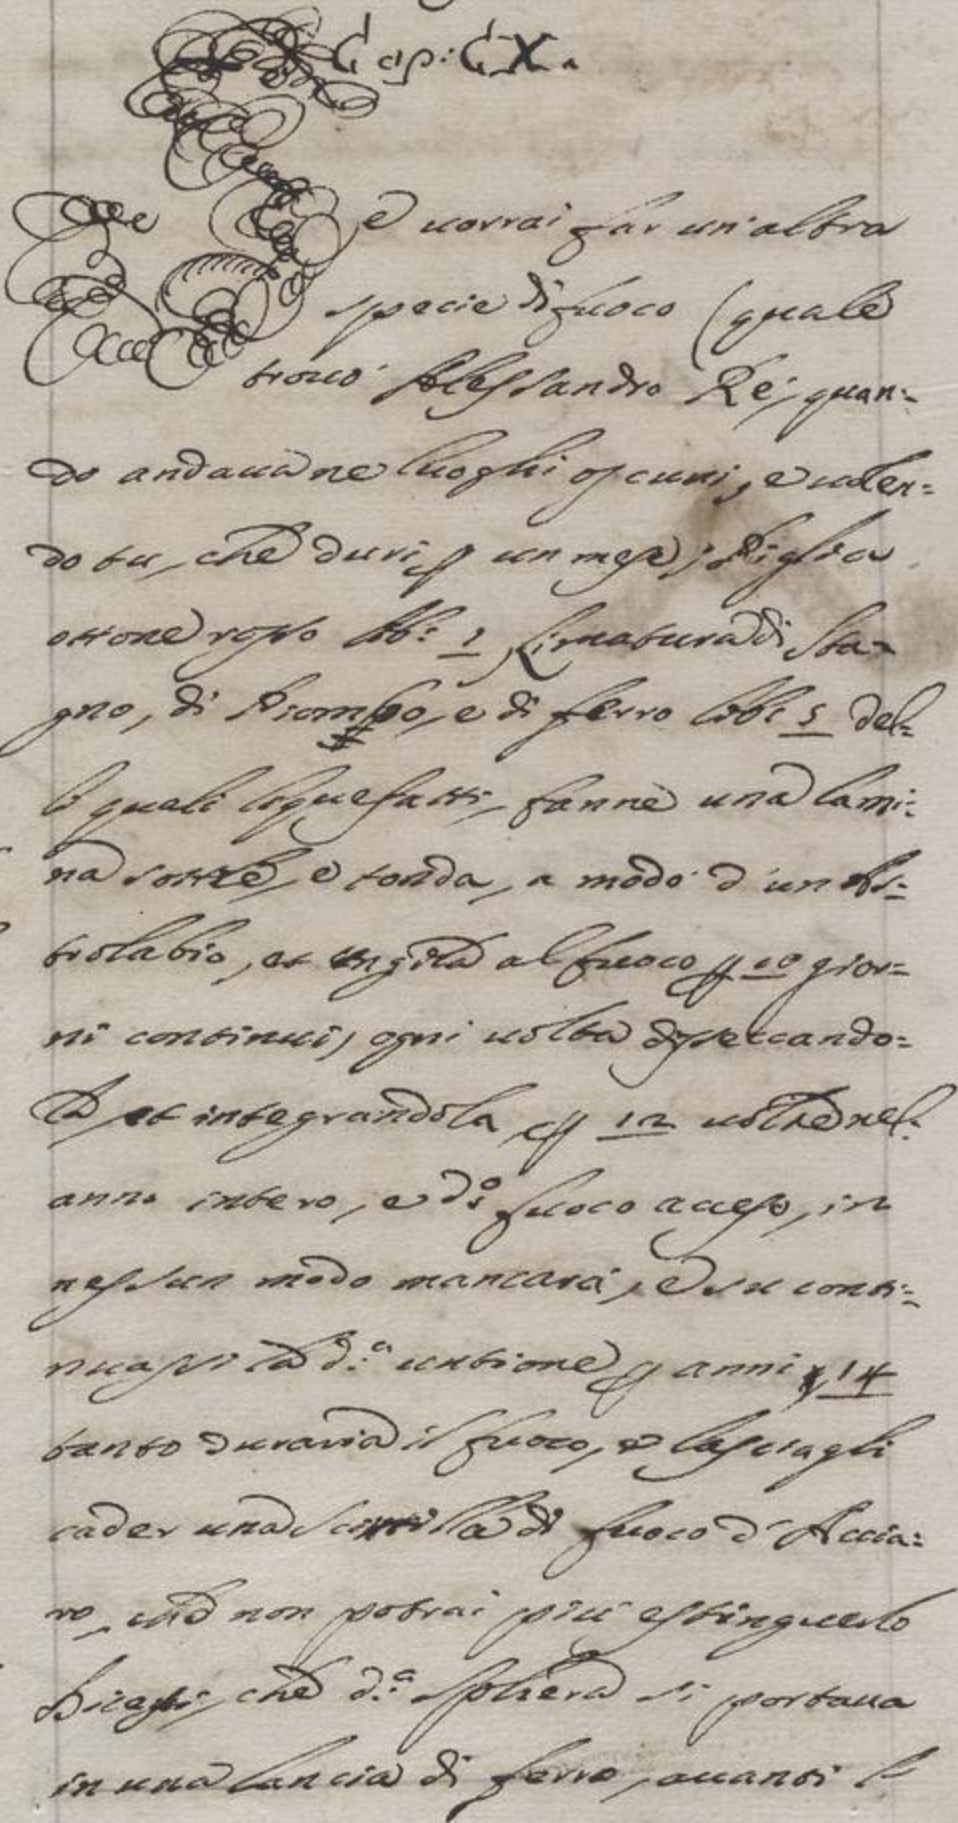 Cap: CX.
Se uorrai far un'altra
specie di fuoco (quale
trouò Alessandro Rè, quan=
do andaua ne luoghi oscuri, e uolen=
do tu, che duri p un mese; Piglia
ottone rosso lib: 1 Limatura di sta=
gno, di Piombo, e di ferro lib: 5 del=
li quali liquefatti, fanne una lami=
na sottile, e tonda, a modo d'un As=
trolabio, et ungila al fuoco p 10 gior=
ni continui, ogni uolta disseccando=
la et integrandola p 12 uolte nel=
anno intero, e d.º fuoco acceso, in
nessun modo mancarà, e se conti=
nuassi la d.ª untione p anni 14
tanto duraria il fuoco, e lasciagli
cader una scintilla di fuoco d'Accia=
ro, che non potrai più estinguerlo
Dicesi, che d.ª sphera si portaua
in una lancia di ferro, auanti l